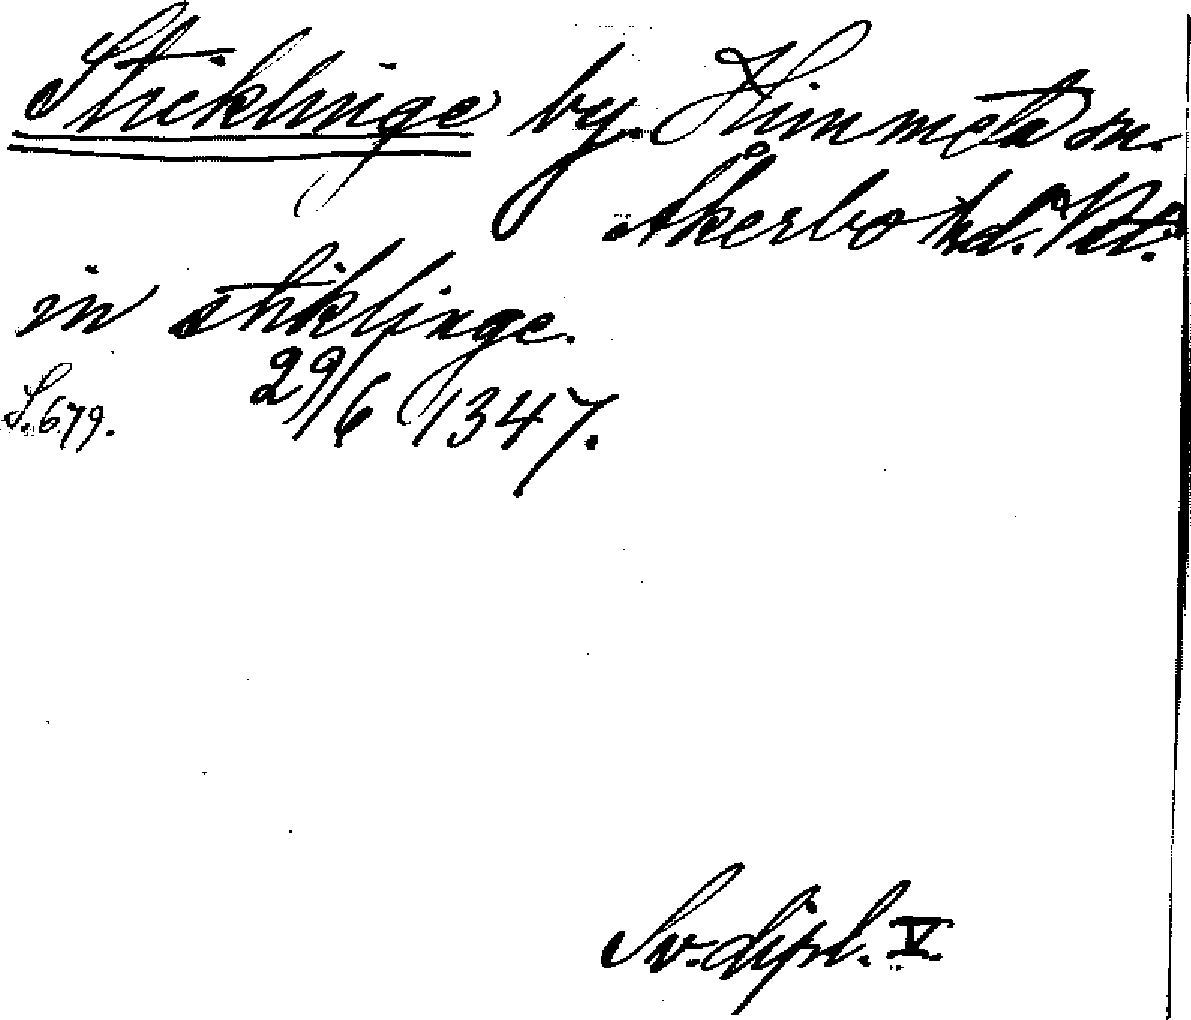 Sticklinge by. Himmeta sn.
Åkerbo hd. Vstm.
in stiklinge.
S. 679. 29/6 1347.
Sv. dipl. V.